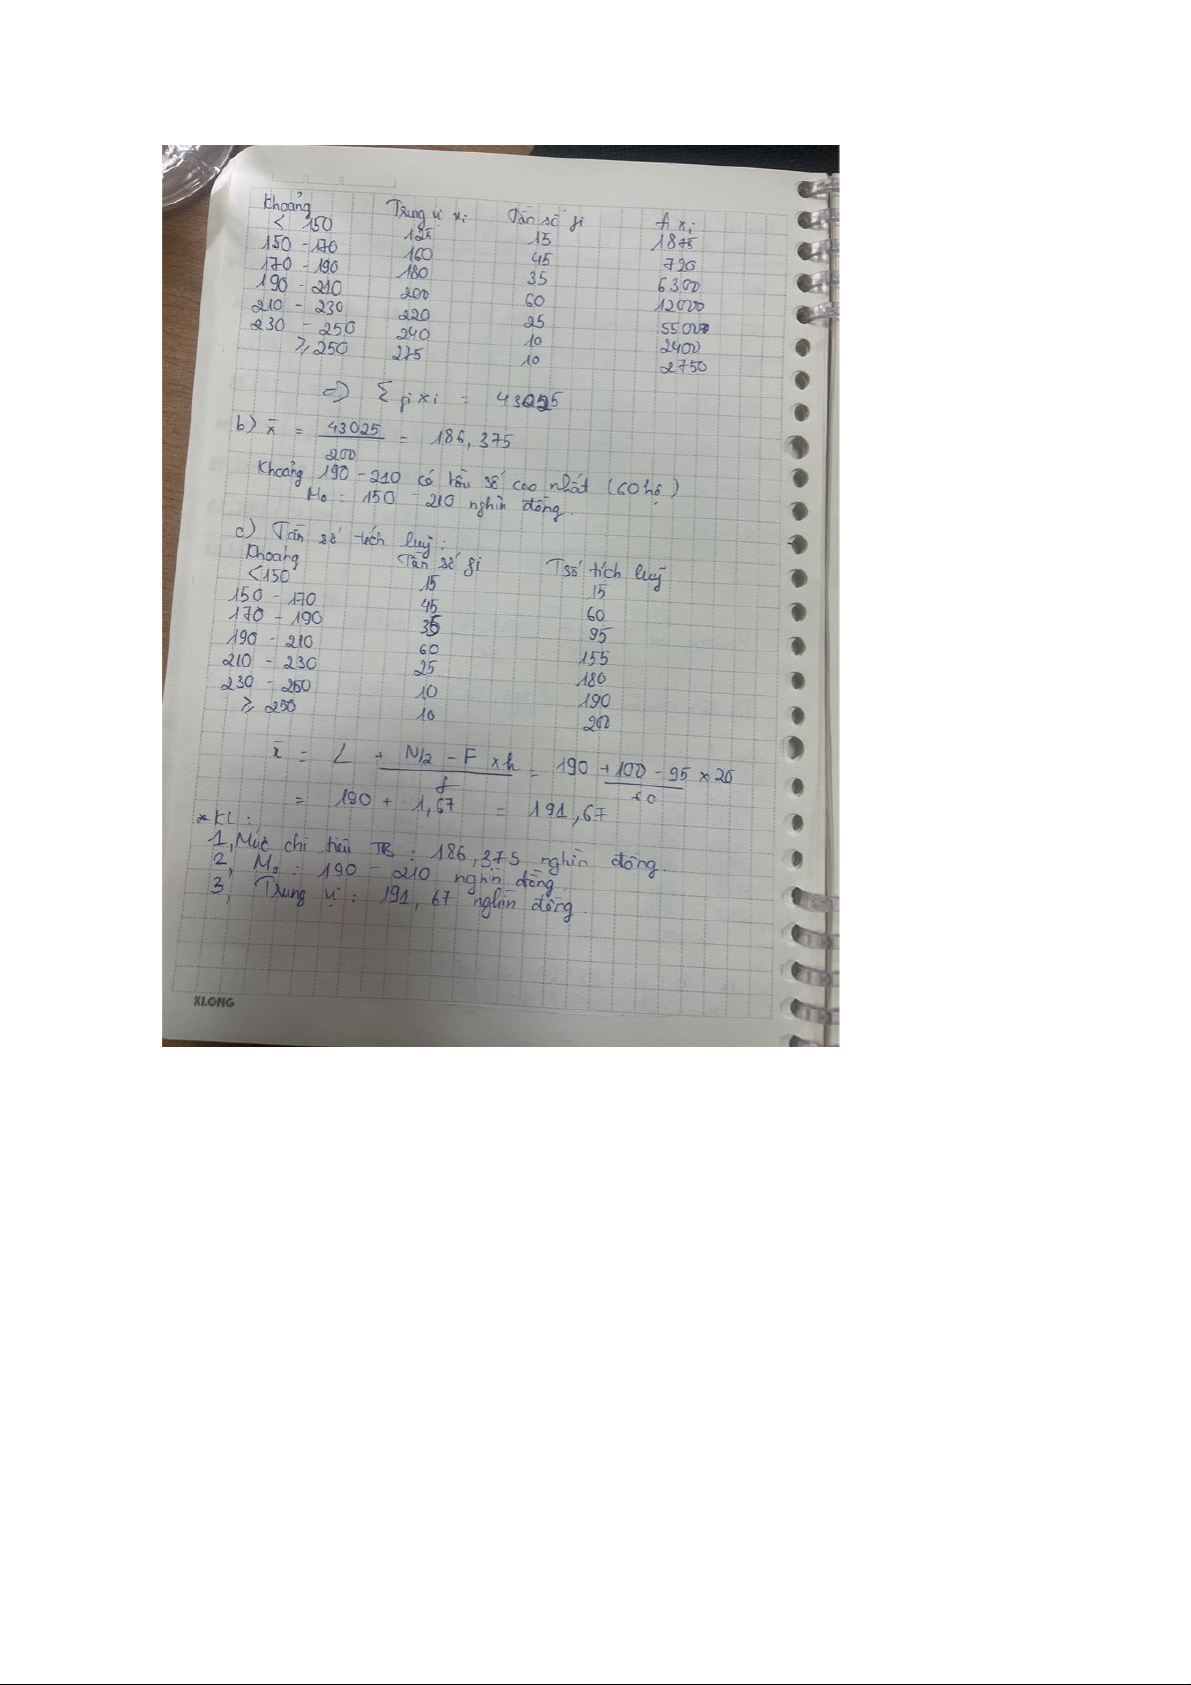 Khoảng Trung vị xi Tần số fi fi xi
< 150 125 15 1875
150 - 170 160 45 720
170 - 190 180 35 6300
190 - 210 200 60 12000
210 - 230 220 25 5500
230 - 250 240 10 2400
≥ 250 275 10 2750
=> Σ fi xi = 43025
b) x̄ = 43025/200 = 186,375
Khoảng 190 - 210 có tần số cao nhất (60 hộ)
Mo = 150 - 210 nghìn đồng.
c) Tần số tích luỹ:
Khoảng Tần số fi Tsố tích luỹ
<150 15 15
150 - 170 45 60
170 - 190 35 95
190 - 210 60 155
210 - 230 25 180
230 - 250 10 190
≥ 250 10 200
x̄ = L + N/2 - F × h / f = 190 + 100 - 95 × 20 / 60
= 190 + 1,67 = 191,67
* KL:
1, Mức chi tiêu TB: 186,375 nghìn đồng.
2, Mo = 190 - 210 nghìn đồng
3, Trung vị: 191,67 nghìn đồng
KLONG